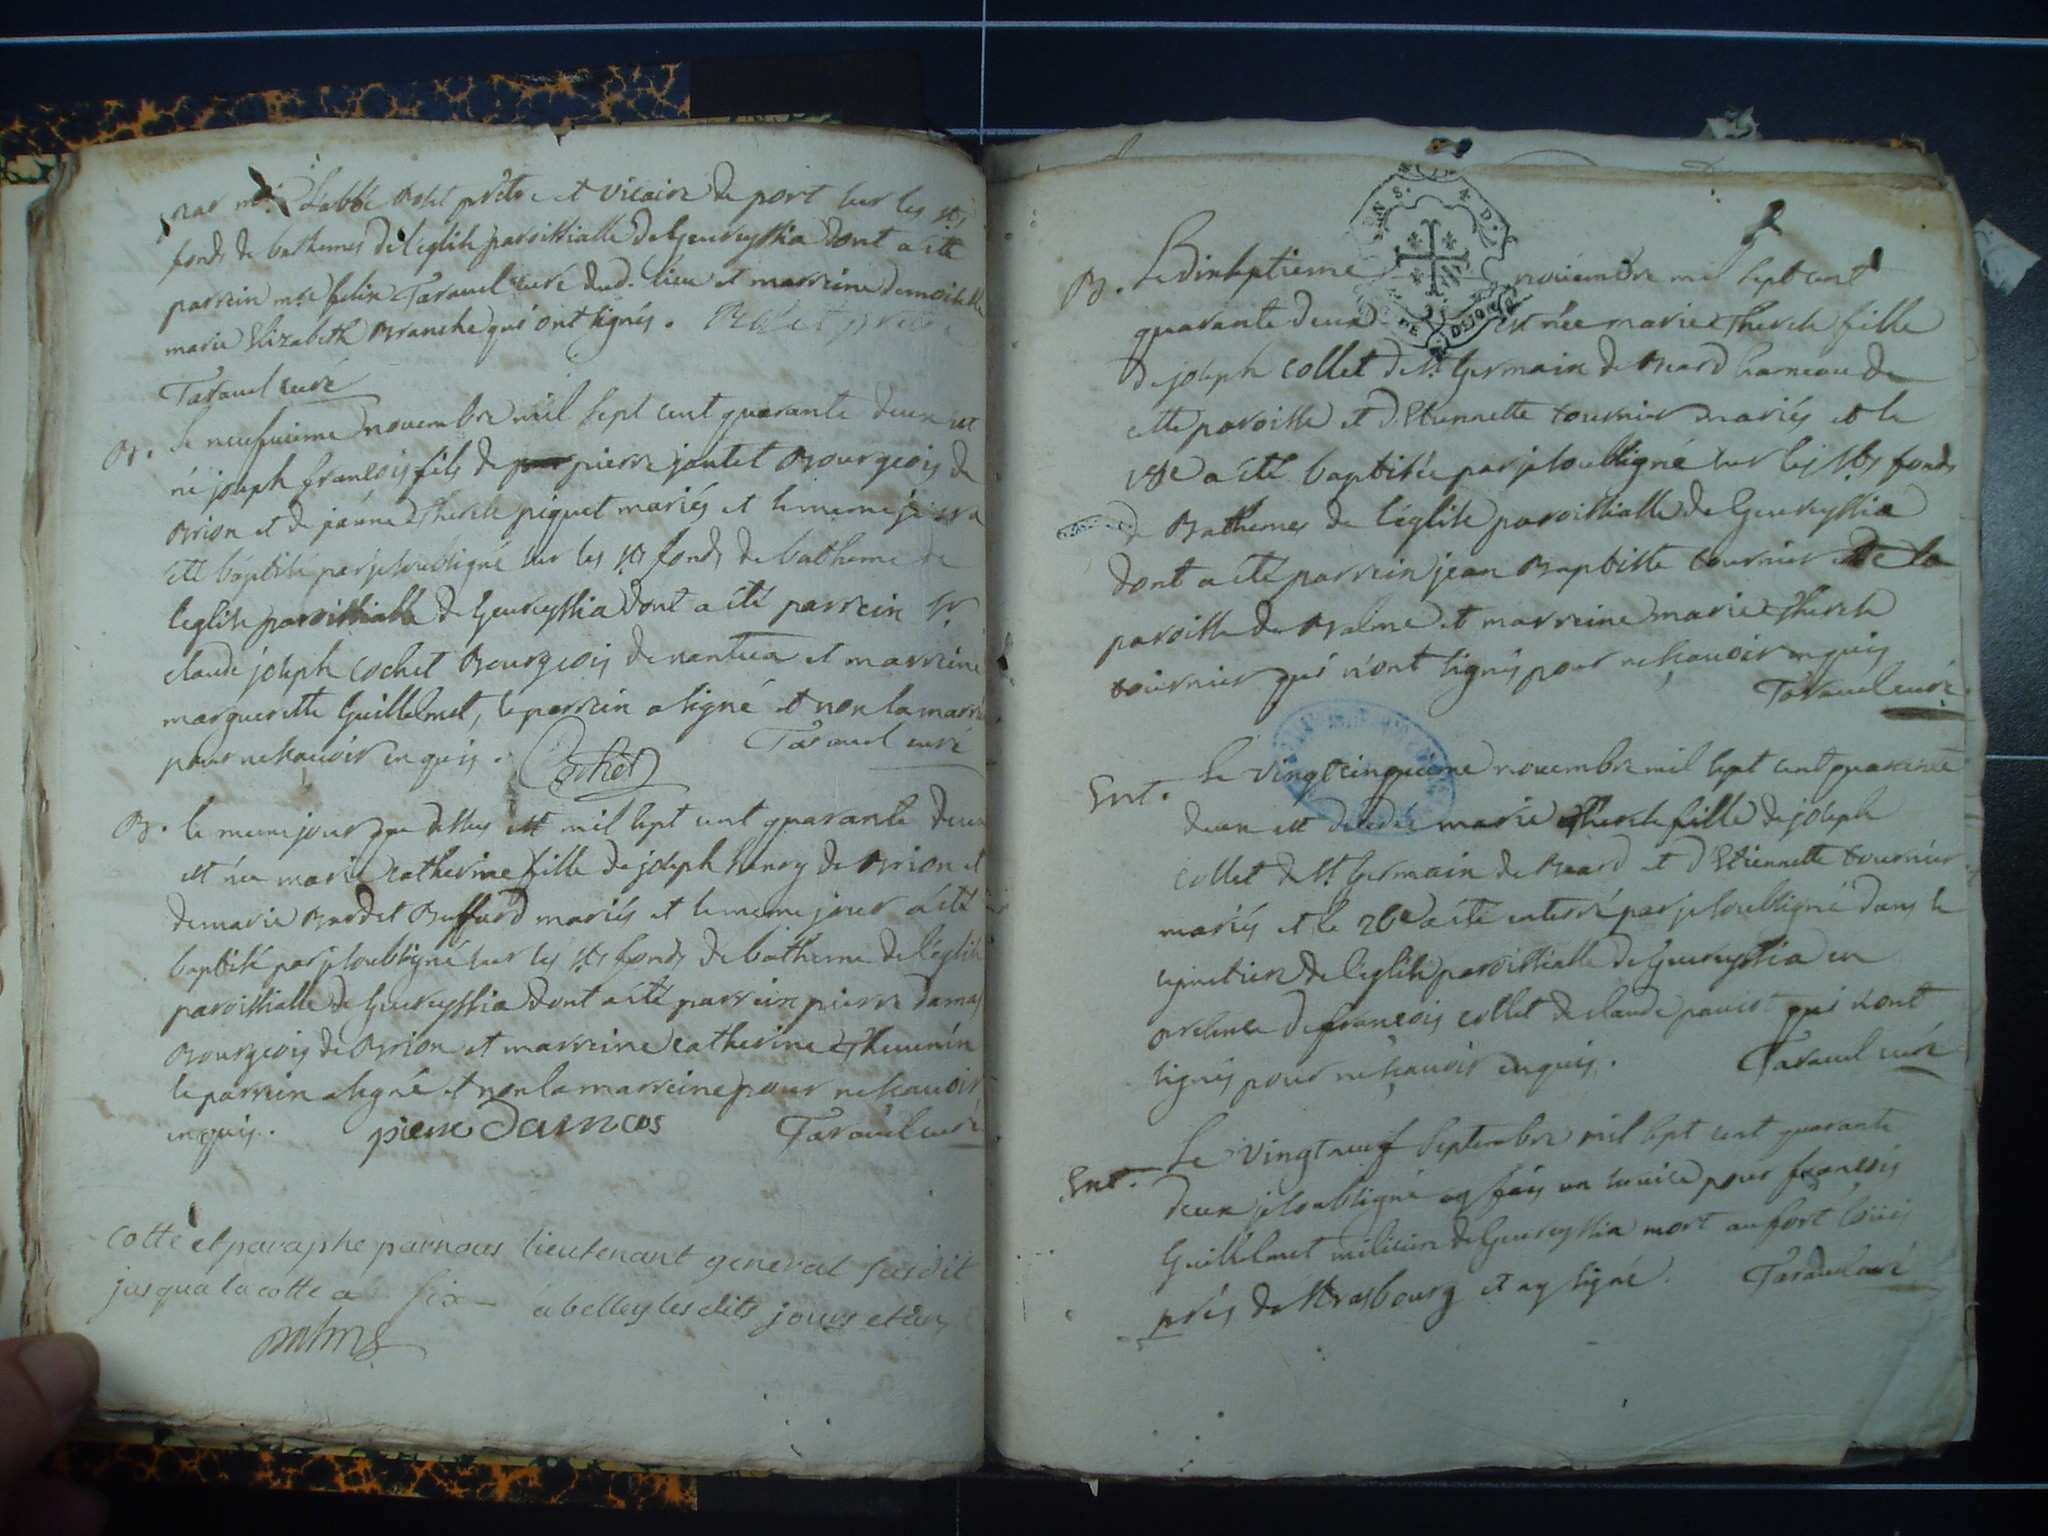 par mr. L'abbé Rolet prêtre et vicaire de port sur les sts
fonds de bathemes de l'eglise paroissialle de Geureyssia dont a été
parrein mre felix Taravel curé dud. lieu et marreine demoiselle
marie Elizabeth Branche qui ont signés. Rolet prêtre
Taravel curé
B. Le neufvieme novembre mil sept cent quarante deux est
né joseph françois fils de pierre jantet Bourgeois de
Brion et de jeanne Therese piquet mariés et le meme jour a
été baptisé par je soubsigné sur les sts fonds de batheme de
l'eglise paroissialle de Geureyssia dont a été parrein sr.
claude joseph cochet Bourgeois de nantua et marreine
marguerette Guillelmet, le parrein a signé et non la marreine
pour ne sçavoir enquis. Cochet Taravel curé
B. le meme jour que dessus est mil sept cent quarante deux
est née marie catherine fille de joseph henry de Brion et
de marie Bardet Buffard mariés et le meme jour a été
baptisé par je soubsigné sur les sts fonds de batheme de l'eglise
paroissialle de Geureyssia dont a été parrein pierre damas
Bourgeois de Brion et marreine catherine Thevenin
le parrein a signé et non la marreine pour ne sçavoir
enquis. pierre Damas Taravel curé
Cotté et paraphé par nous lieutenant general susdit
jusqua la cotte a six a belley les dits jours et an
B. Le dixseptieme novembre mil sept cent
quarante deux est née marie Therese fille
de joseph collet de st Germain de Beard hameau de
cette paroisse et d'Etiennette tournier mariés et le
18e a été baptisée par je soubsigné sur les sts fonds
de Bathemes de l'église paroissialle de Geureyssia
dont a été parrein jean Baptiste tournier de la
paroisse de Balme et marreine marie Therese
tournier qui n'ont signés pour ne sçavoir enquis
Taravel curé
Ent. Le vingt cinquieme novembre mil sept cent quarante
deux est decedée marie Therese fille de joseph
collet de st Germain de Beard et d'Etiennette tournier
mariés et le 26e a été enterré par je soubsigné dans le
cimetiere de l'eglise paroissialle de Geureyssia en
presence de françois collet de claude qui n'ont
signés pour ne sçavoir enquis. Taravel curé
Ent. Le vingt neuf septembre mil sept cent quarante
deux je soubsigné ay fais un service pour françois
Guillelmet milicien de Geureyssia mort au fort loüis
prés de strasbourg et ay signé. Taravel curé